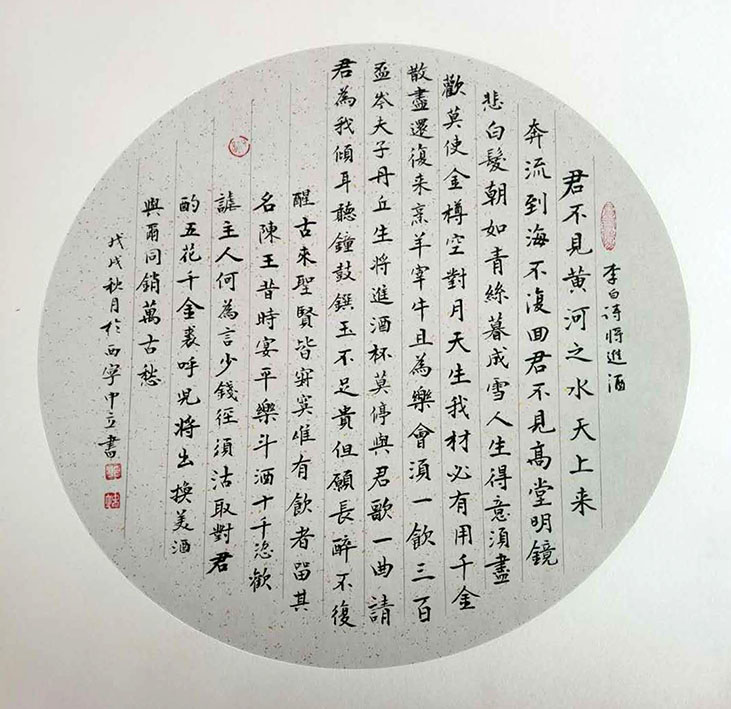 李白詩將進酒
君不見黄河之水天上来
奔流到海不復回君不見高堂明鏡
悲白髮朝如青絲暮成雪人生得意須盡
歡莫使金樽空對月天生我材必有用千金
散盡還復来烹羊宰牛且為樂會須一飲三百
盃岑夫子丹丘生將進酒杯莫停與君歌一曲請
君為我傾耳聽鐘鼓饌玉不足貴但願長醉不復
醒古来聖賢皆寂寞惟有飲者留其
名陳王昔時宴平樂斗酒十千恣歡
謔主人何為言少錢徑須沽取對君
酌五花千金裘呼兒將出換美酒
與爾同銷萬古愁
戊戌秋月於西寧中立書